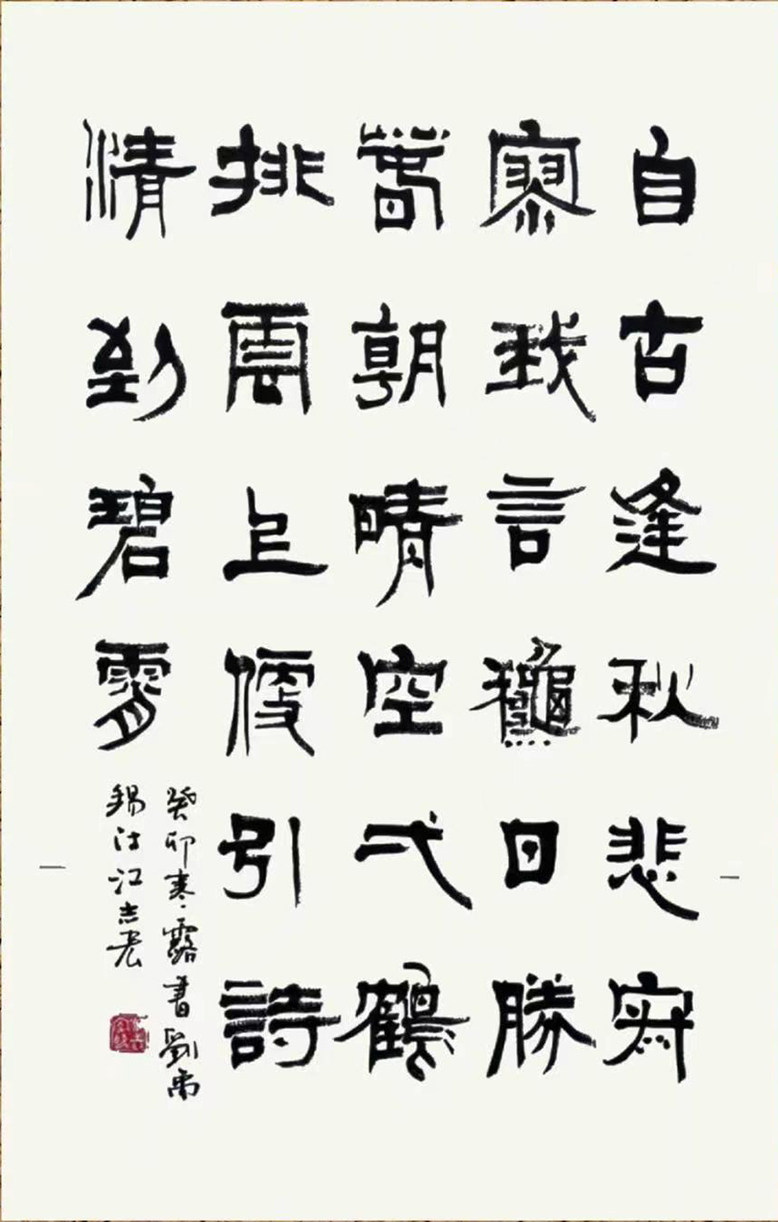 自古逢秋悲寂
寥我言龝日勝
萅朝晴空弌鶴
排雲上便引詩
情到碧霄
癸卯寒露書劉禹
錫诗江志宏